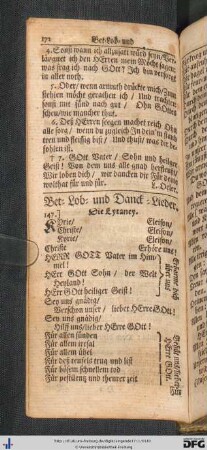 172 Bet-Lob- und
4. Sonst wann ich allzusatt würd seyn/ Ver-
läugnet ich den HErren mein Möcht sagen:
was frag ich nach GOtt? Ich bin versorgt
in aller noth.
5. Oder/ wenn armuth drückte mich/ Zum
stehlen möcht gerathen ich/ Und trachten
sonst mit sünd nach gut/ Ohn Gottes
scheu/ wie mancher thut.
6. Des HErren seegen machet reich Ohn
alle sorg/ wenn du zugleich In dein'm stand
treu und fleißig bist/ Und thust/ was dir be-
fohlen ist.
7. GOtt Vater/ Sohn und heilger
Geist! Von dem uns alle gnad herfleußt/
Wir loben dich/ wir dancken dir Für deine
wolthat für und für. L. Oeler.
Bet- Lob- und Danck-Lieder.
147. Die Lytaney.
KYrie/ Eleison/
Christe/ Eleison/
Kyrie/ Eleison/
Christe Erhöre uns!
HERR GOTT Vater im Him-
mel!
HErr GOtt Sohn/ der Welt
Heyland!
HErr GOtt heiliger Geist!
Erbarme dich
über uns
Sey uns gnädig/
Verschon unser/ lieber HErre GOtt!
Sey uns gnädig/
Hilff uns/ lieber HErre GOtt!
Für allen sünden
Für allem irrsal
Für allem übel
Für des teufels trug und list
Für bösem schnellem tod
Für pestilentz und theurer zeit
Behüt uns/ lieber
HErre GOtt.
DFG